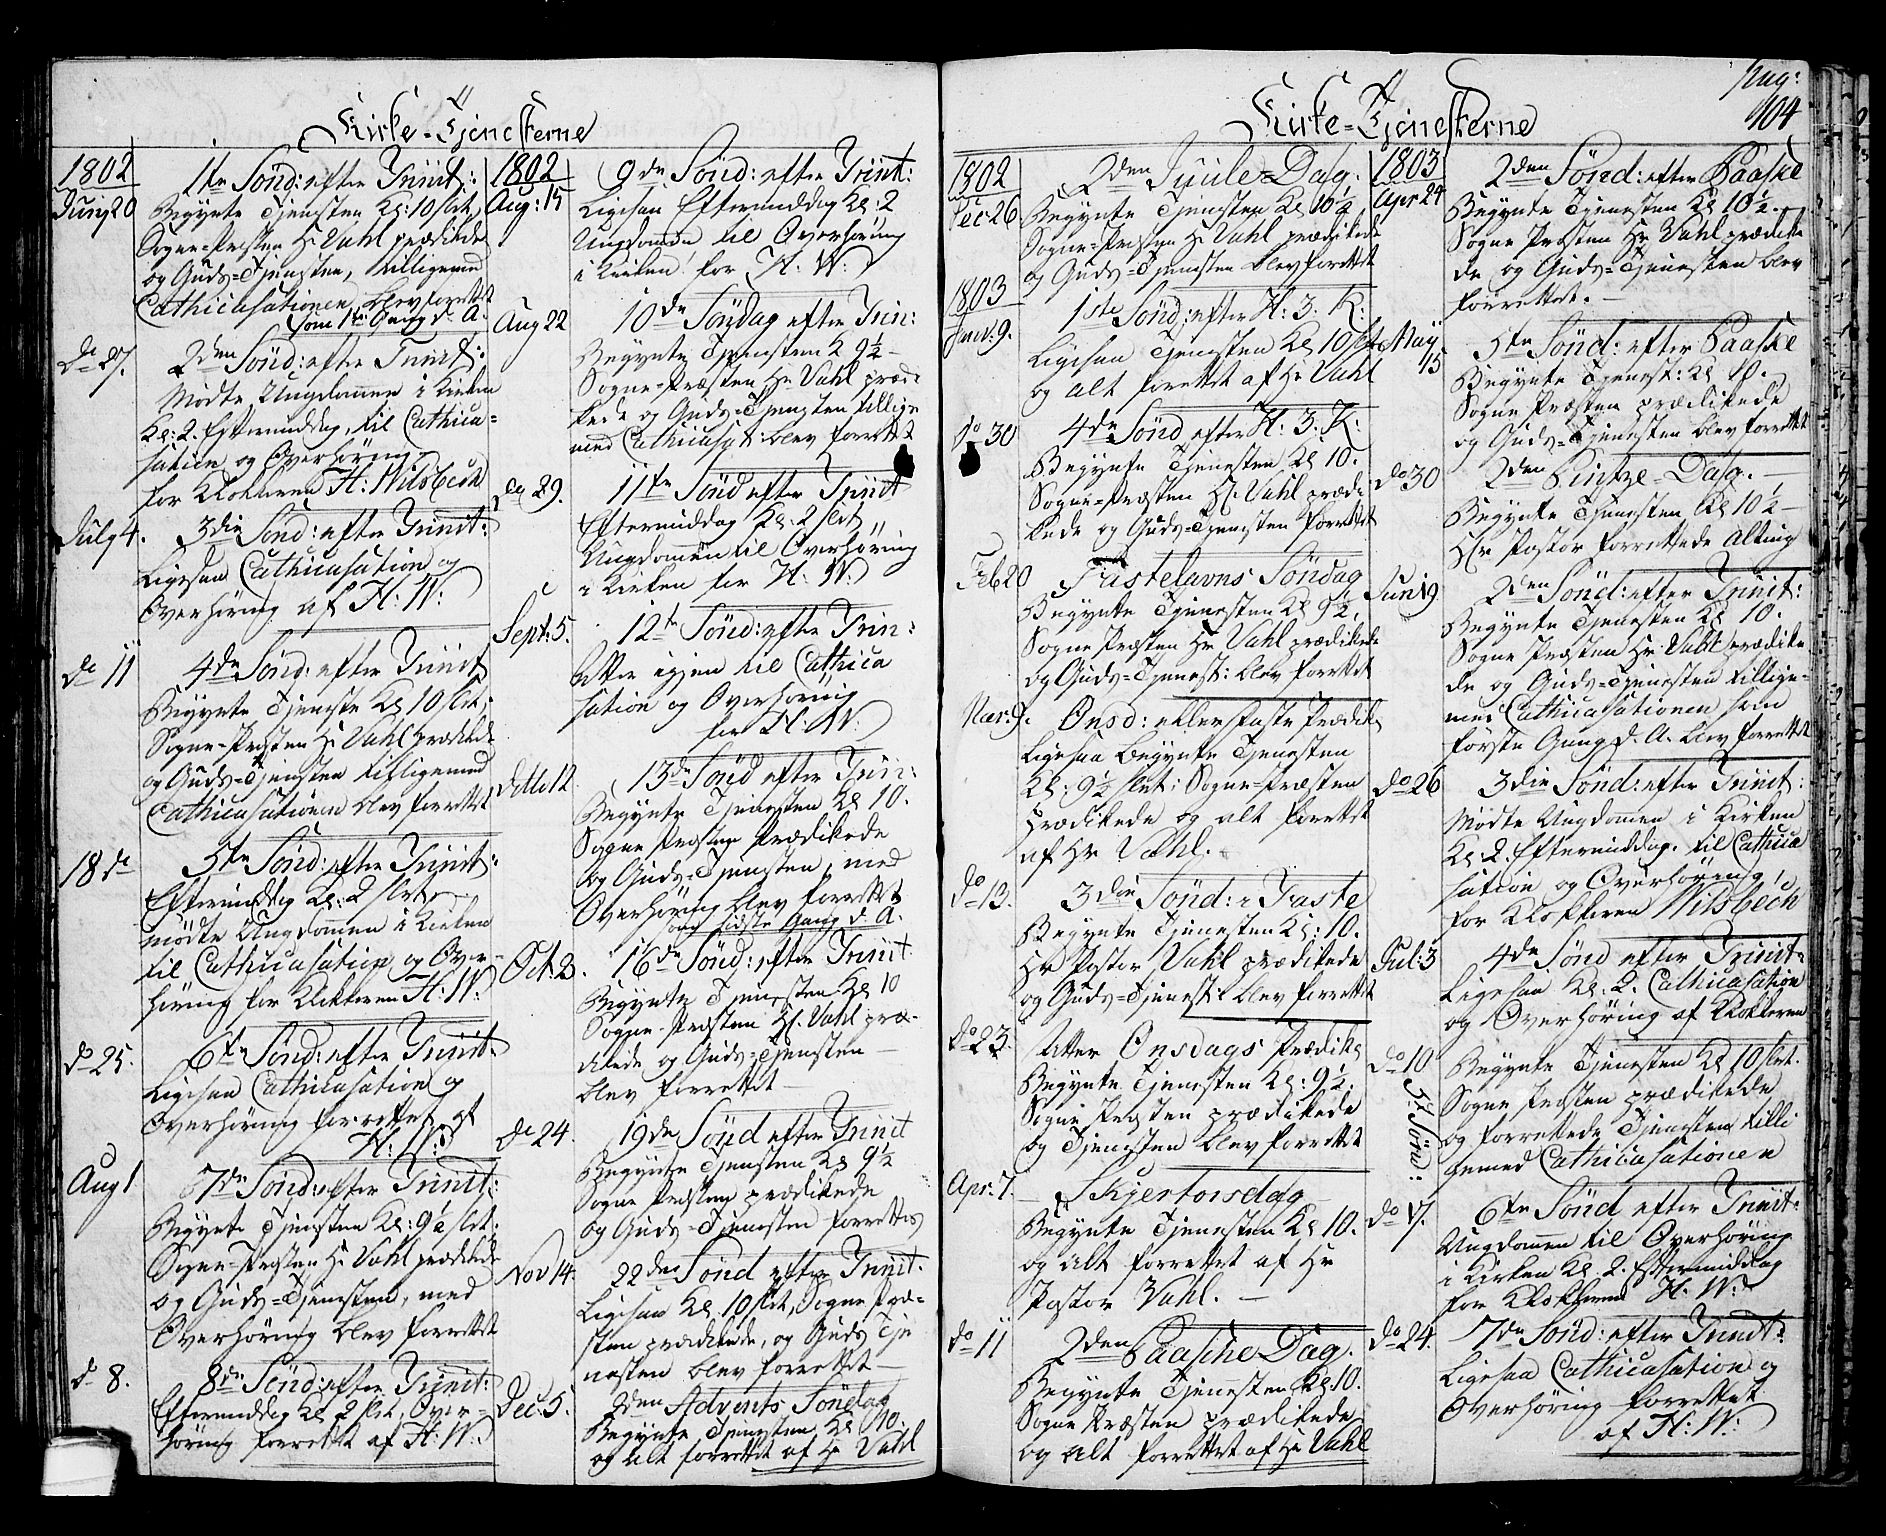 Kirke-Tjenesterne
1802
Juny 20
1te Sönd: efter Trinit:
Begynte Tjenesten Kl: 10 slet,
Sogne-Præsten Hr Vahl prædikede
og Guds-Tjenesten, tilligemed
Cathicasationen, blev forrettet
som 1te Gang d. A.
do 27.
2den Sönd: efter Trinit:
Mödte Ungdommen i Kirken
Kl: 2. Eftermiddag, til Cathica-
sation og Overhöring
for Klokkeren H: Wilsbech
July 4.
3die Sönd: efter Trinit:
Ligesaa Cathicasation og
Overhöring af H: W:
do 11
4de Sönd: efter Trinit
Begynte Tjeneste Kl 10 slet,
Sogne-Præsten Hr Vahl prædikede
og Guds-Tjenesten tilligemed
Cathicasationen blev forrettet
18 do
5te Sönd: efter Trinit:
Eftermiddag Kl: 2 slet
mödte Ungdommen i Kirken
til Cathicasation og Over-
höring for Klokkeren H: W:
do 25.
6te Sönd: efter Trinit:
Ligesaa Cathicasation og
Overhöring forrettet af
H: W:
Aug 1
7de Sönd: efter Trinit:
Begynte Tjenesten Kl: 9½ slet:
Sogne-Præsten Hr Vahl prædikede
og Guds-Tjenesten, med
Overhöring blev forrettet
do 8.
8de Sönd: efter Trinit:
Eftermiddag Kl 2 slet, Over-
höring forrettet af H: W:
1802
Aug: 15
9de Sönd: efter Trinit:
Ligesaa Eftermiddag Kl: 2
Ungdommen til Overhöring
i Kirken for H: W:
Aug 22
10de Söndag efter Trin:
Begynte Tjenesten K 9½ —
Sogne-Præsten Hr Vahl præde
kede og Guds-Tjenesten tillige
med Cathicasat: blev forrettet
do 29.
11te Sönd efter Trinit
Eftermiddag Kl: 2 slet
Ungdommen til Overhöring
i Kirken for H: W:
Sept: 5.
12te Sönd: efter Trin:
Atter igjen til Cathica
sation og Overhöring
for H: W:
Ditto 12
13de Sönd efter Trin:
Begynte Tjenesten Kl 10.
Sogne Præsten Prædikede
og Guds-Tjenesten, med
Overhöring blev forrettet
som sidste Gang d. A.
Oct: 3.
16de Sönd: efter Trinit.
Begynte Tjenesten Kl 10
Sogne-Præsten Hr. Vahl præ-
dikede og Guds-Tjenesten —
blev forrettet —
do 24.
19de Sönd efter Trinit
Begynte Tjenesten Kl 9½
Sogne Præsten prædikede
og Guds-Tjenesten forrettes
Nov 14.
22de Sönd efter Trinit.
Ligesaa Kl. 10 slet, Sogne Præ-
sten prædikede, og Guds Tje
nesten blev forrettet —
Dec: 5.
2den Advents Söndag
Begynte Tjenesten Kl 10.
og alt forrettet af Hr Vahl
pag:
104
Kirke-Tjenesterne
1802
Dec 26
2den Juule-Dag.
Begynte Tjenesten Kl 10½
Sogne-Præsten Hr Vahl prædikede
og Guds-Tjenesten blev forrettet
1803
Janv: 9.
1ste Sönd: efter H. 3. K:
Ligesaa Tjenesten Kl 10 slet
og alt forrettet af Hr Vahl
do 30
4de Sönd efter H: 3. K:
Begynte Tjenesten Kl 10.
Sogne-Præsten Hr. Vahl prædi
kede og Guds-Tjenesten forrettet
Feb 20
Fastelavns Söndag
Begynte Tjenesten Kl 9½.
Sogne Præsten Hr Vahl prædikede
og Guds-Tjenest: blev forrettet
Mar: 9.
Onsd: eller faste Prædik
Ligesaa Begynte Tjenesten
Kl: 9½ slet: Sogne-Præsten
prædikede og alt forrettet
af Hr Vahl.
do 13.
3die Sönd: i Faste
Begynte Tjenesten Kl: 10.
Hr Pastor Vahl prædikede
og Guds-Tjenest: blev forrettet
do 23.
Atter Onsdags Prædik
Begynte Tjenesten Kl: 9½.
Sogne Præsten prædikede
og Tjenesten blev forrettet
Apr: 7.
Skjertorsdag
Begynte Tjenesten Kl 10.
og alt forrettet af Hr
Pastor Vahl. —
do 11
2den Paasche Dag.
Begynte Tjenesten Kl 10.
Sogne Præsten prædikede
og alt forrettet af Hr Vahl
1803
Apr 24
2den Sönd: efter Paaske
Begynte Tjenesten Kl 10½.
Sogne Præsten Hr Vahl prædike
de og Guds-Tjenesten blev
forrettet. —
May
15
5te Sönd: efter Paaske
Begynte Tjenest: Kl 10.
Sogne Præsten prædikede
og Guds-Tjenesten blev forrettet
do 30
2den Pintze-Dag. —
Begynte Tjenesten Kl 10½ —
Hr Pastor forrettede Alting
Jun 19
2den Sönd: efter Trinit:
Begynte Tjenesten Kl 10.
Sogne Præsten Hr Vahl prædike
de og Guds-Tjenesten tillige-
med Cathicasationen som
förste Gang d. A. blev forrettet
do 26
3die Sönd: efter Trinit:
Mödte Ungdomen i Kirken
Kl: 2. Eftermiddag. til Cathica
sation og Overhörensg,
for Klokkeren Wilsbech
Jul: 3
4de Sönd efter Trinit:
Ligesaa Kl. 2. Cathicasation
og Overhöring af Klokkeren
do 10
5te Sönd:
Begynte Tjenesten Kl 10 slet.
Sogne Præsten prædikede
og forrettede Tjenesten tilli
gemed Cathicasationen
do 17.
6te Sönd efter Trinit:
Ungdommen til Overhöring
i Kirken Kl. 2. Eftermiddag
for Klokkeren H: W:
do 24.
7de Sönd: efter Trinit:
Ligesaa Cathicasation og
Overhöring forrettet
af H: W: